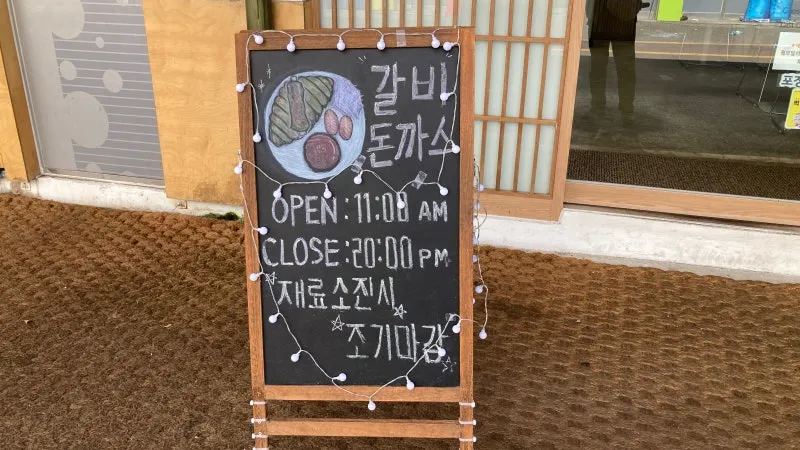 "갈비
돈까스"
OPEN:11:00 AM
CLOSE:20:00 PM
재료소진시
조기마감